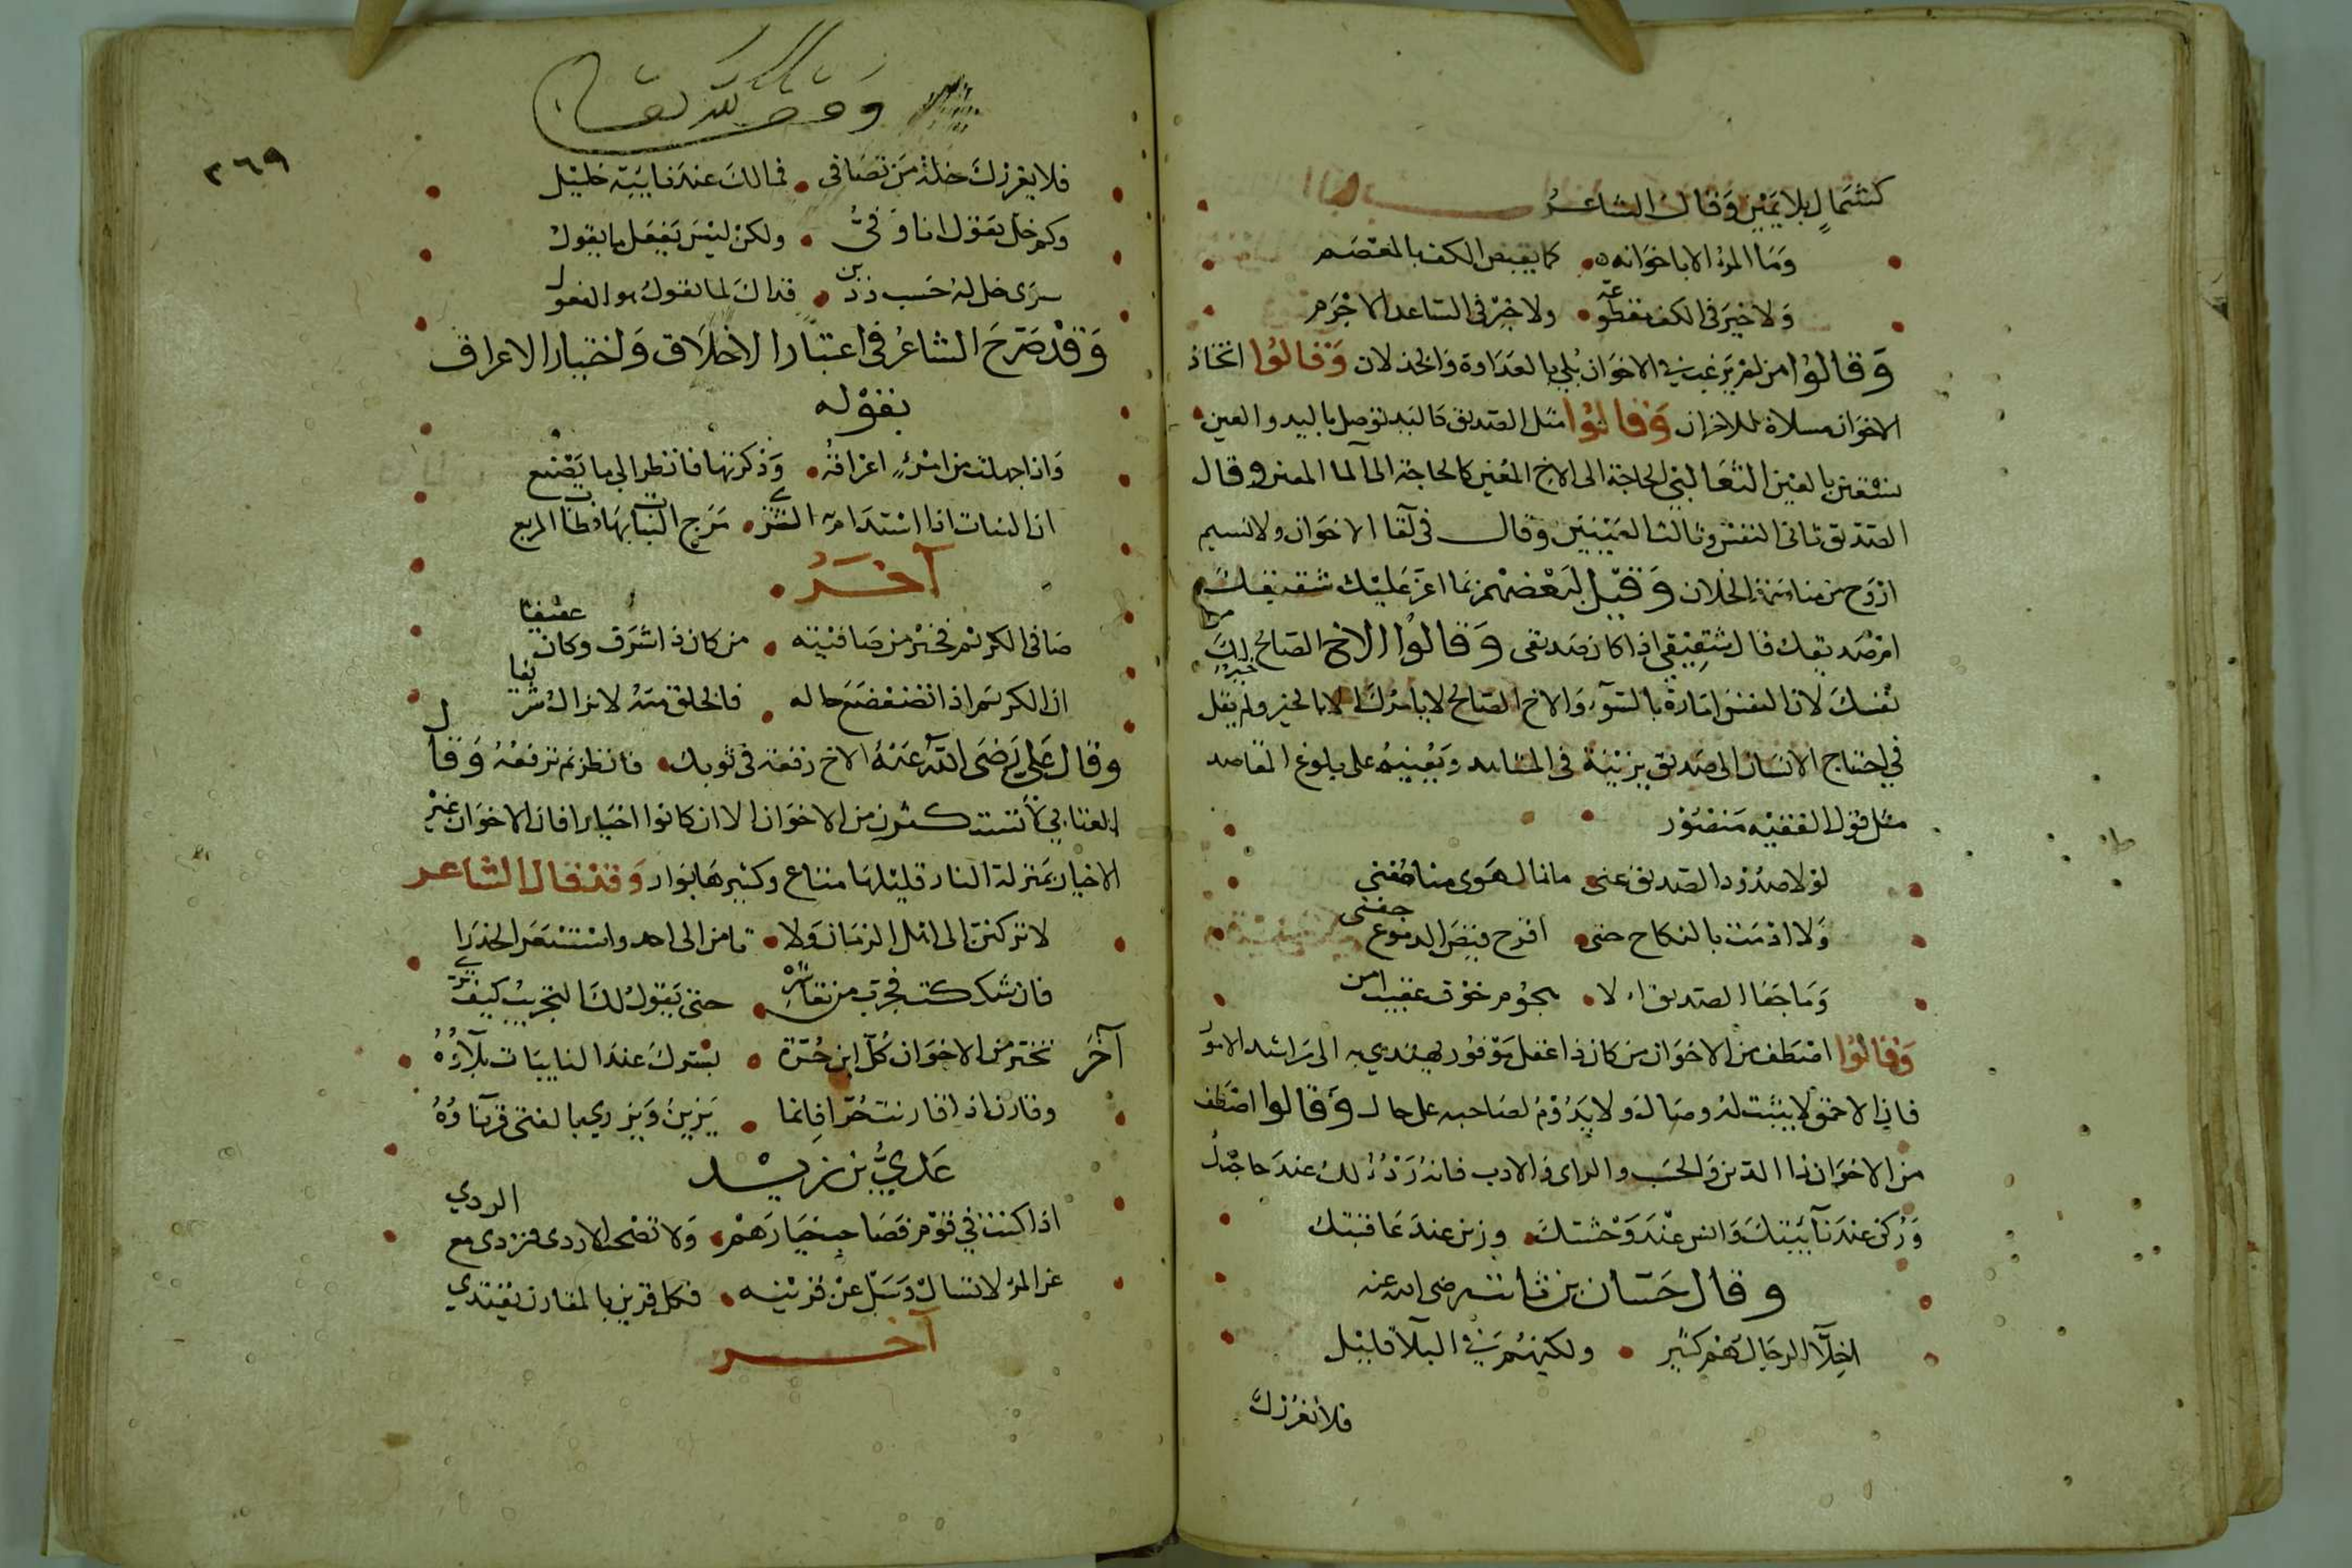 كشمالٍ بلا يمين وقال الشاعر
وما المرء الا باخوانه كما يقبض الكف بالمعصم
ولا خير في الكف مقطوعة ولا خير في الساعد الاجذم
وقالوا من لم يرغب في الاخوان بُلي بالعداوة والخذلان وقالوا اتخاذ
الاخوان مسلاة للاحزان وقالوا مثل الصديق كاليد توصل باليد والعين
تستعين بالعين الثعالبي الحاجة الى الاخ المعين كالحاجة الى الماء المعين وقال
الصديق ثاني النفس وثالث العينين وقال في لقا الاخوان ولا نسيم
اروح من مناسمة الخلان وقيل لبعضهم بما اعز عليك شقيقك
ام صديقك قال شقيقي اذا كان صديقي وقالوا الاخ الصالح خير لك من
نفسك لان النفس امارة بالسوء والاخ الصالح لا يامرك الا بالخير ولم يقل
في احتياج الانسان الى صديق يزينه في المشاهد ويعينه على بلوغ المقاصد
مثل قول الفقيه منصور
لولا صدود الصديق عني ما نال الهوى منا مني
ولا اذمت بالنكاح حتى اقرح فيض الدموع جفني
وما جفا الصديق الا هجوم خوف عقيب امن
وقالوا اصطف من الاخوان من كان ذا عقل موفور يهتدي به الى مراشد الامو
فان الاحمق لا يثبت له وصال ولا يدوم لصاحبه على حال وقالوا اصطف
من الاخوان ذا الدين والحسب والراى والادب فانه ردء لك عند حاجتك
وركن عند نآئبتك وانس عند وحشتك وزين عند عافيتك
وقال حسان بن ثابت رضى الله عنه
اخلآ الرجال هم كثير ولكنهم في البلآ قليل
فلا يغررك
وقف لله تعالى
٢٦٩
فلا يغررك خلة من تصافى فمالك عند نايبة خليل
وكم خل يقول انا وفيٌ ولكن ليس يفعل ما يقول
سوى خل له حسب ودين فذاك لما يقول هو الفعول
وقد صرح الشاعر في اعتبار الاخلاق واختيار الاعراق
بقوله
واذا جهلت من امرئٍ اعراقه وذكرتها فانظر الى ما يصنع
ان النبات اذا استدامت الثرى مرج النبات بها وطاب المربع
آخر
صافى الكريم فخير من صافيته من كان ذا شرف وكان عفيفا
ان الكريم اذا تضعضع حاله فالخلق منه لا يزال شريفا
وقال علي رضى الله عنه الاخ رقعة في ثوبك فانظر بم ترقعه وقال
العتابي لا تستكثرن من الاخوان الا ان كانوا اخيارا فان الاخوان غير
الاخيار بمنزلة النار قليلها متاع وكثيرها بوار وقد قال الشاعر
لا تركنن الى اهل الزمان ولا تامن الى احد واستشعر الحذرا
فان شككت فجرب من تعاشره حتى يقول لك التجريب كيف ترى
آخر تخير من الاخوان كل ابن حرة يسرك عند النايبات بلآؤه
وقارن اذا قارنت حرا فانما يزين ويزري بالفتى قرنآؤه
عدي بن زيد
اذا كنت في قوم فصاحب خيارهم ولا تصحب الاردى فتردى مع الردي
عن المرء لا تسال وسل عن قرينه فكل قرين بالمقارن يقتدي
آخر